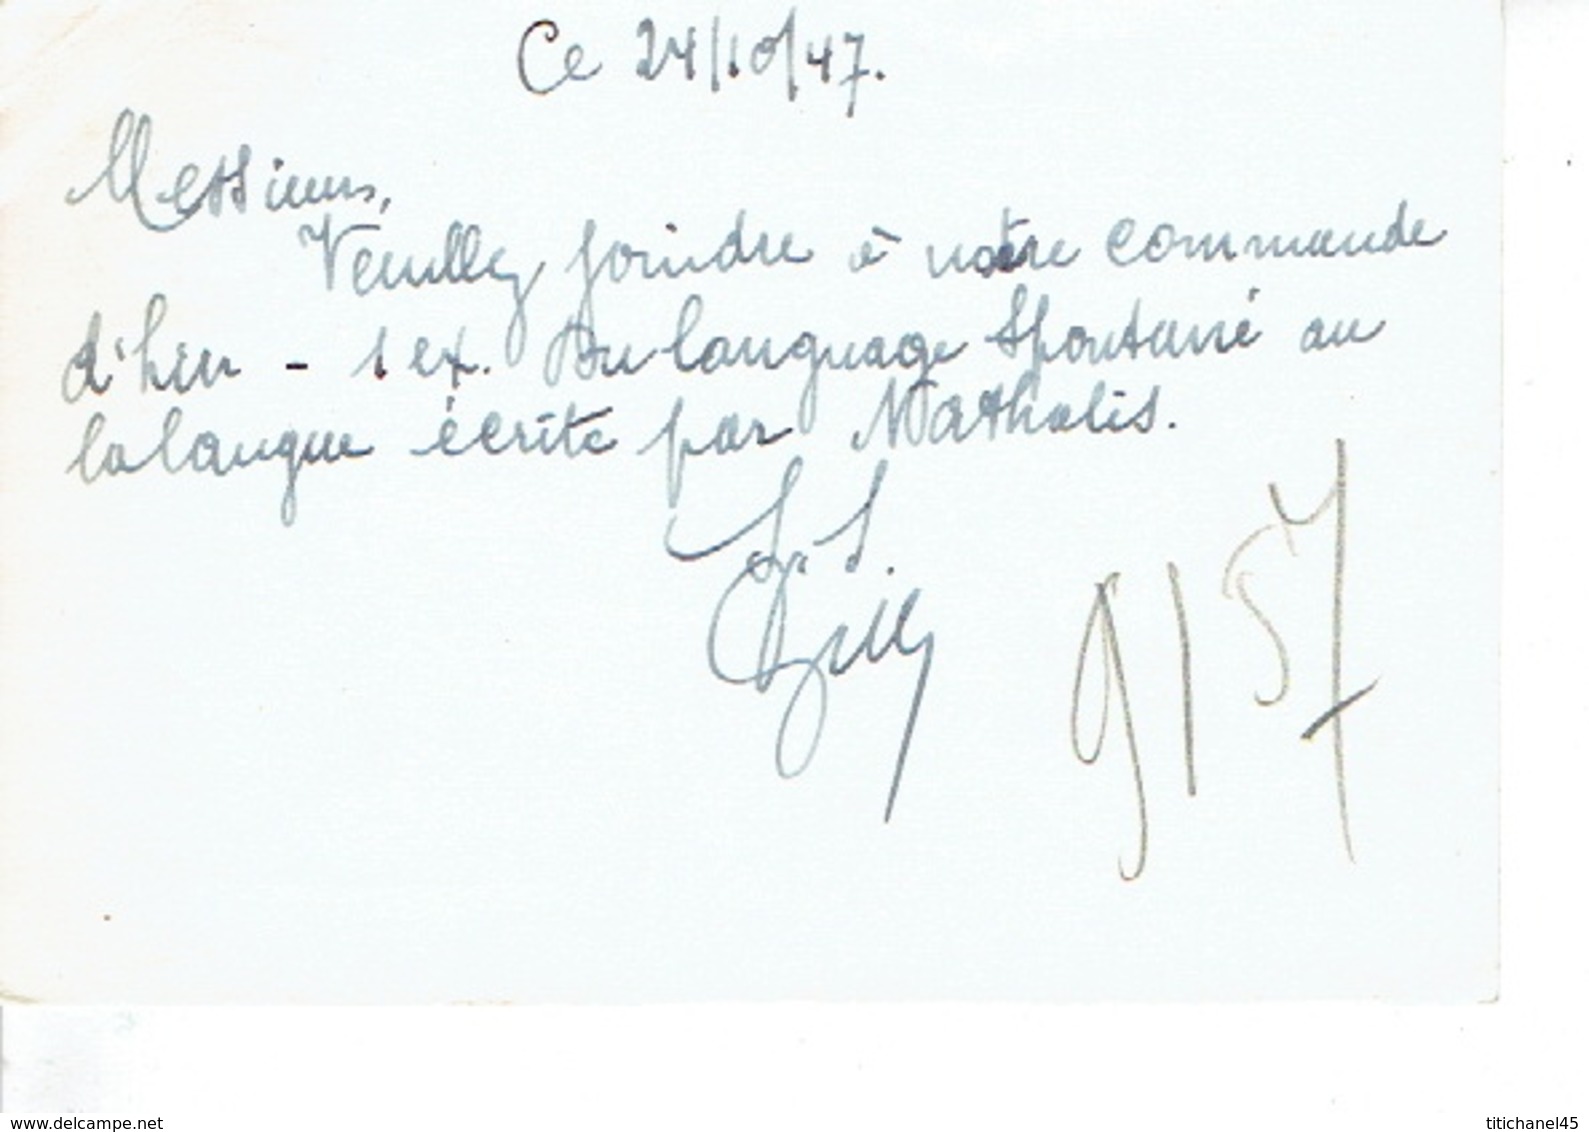 Ce 24/10/47.
Messieurs,
Veuillez joindre à notre commande
d'hier - 1 ex. Du language spontané au
la langue écrite par Mathalis.
S.
9157
les-cartes.delcampe.net
titichanel45